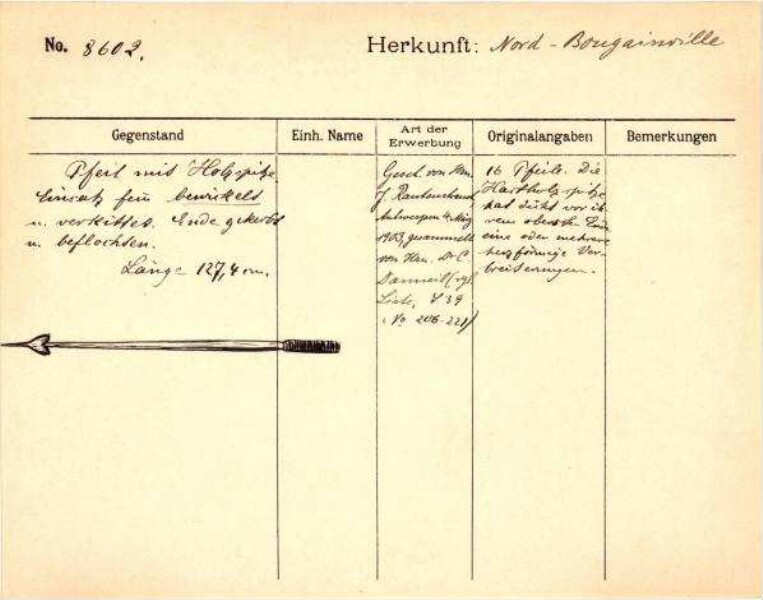 No. 8602.
Herkunft: Nord-Bougainville
Gegenstand
Einh. Name
Art der Erwerbung
Originalangaben
Bemerkungen
Pfeil mit Holzspitze.
Einsatz fein bewickelt
u. verkittet. Ende gekerbt
u. beflochten.
Länge 127,4 cm.
Gesch. von Hrn.
J. Rautenstrauch,
Antwerpen 4. März
1903, gesammelt
von Hrn. Dr C.
Danneil (vgl.
Liste, S 39
No 206-221)
16 Pfeile. Die
Hartholzspitze
hat dicht vor ih
rem oberste Ende
eine oder mehrere
herzförmige Ver-
breiterungen.